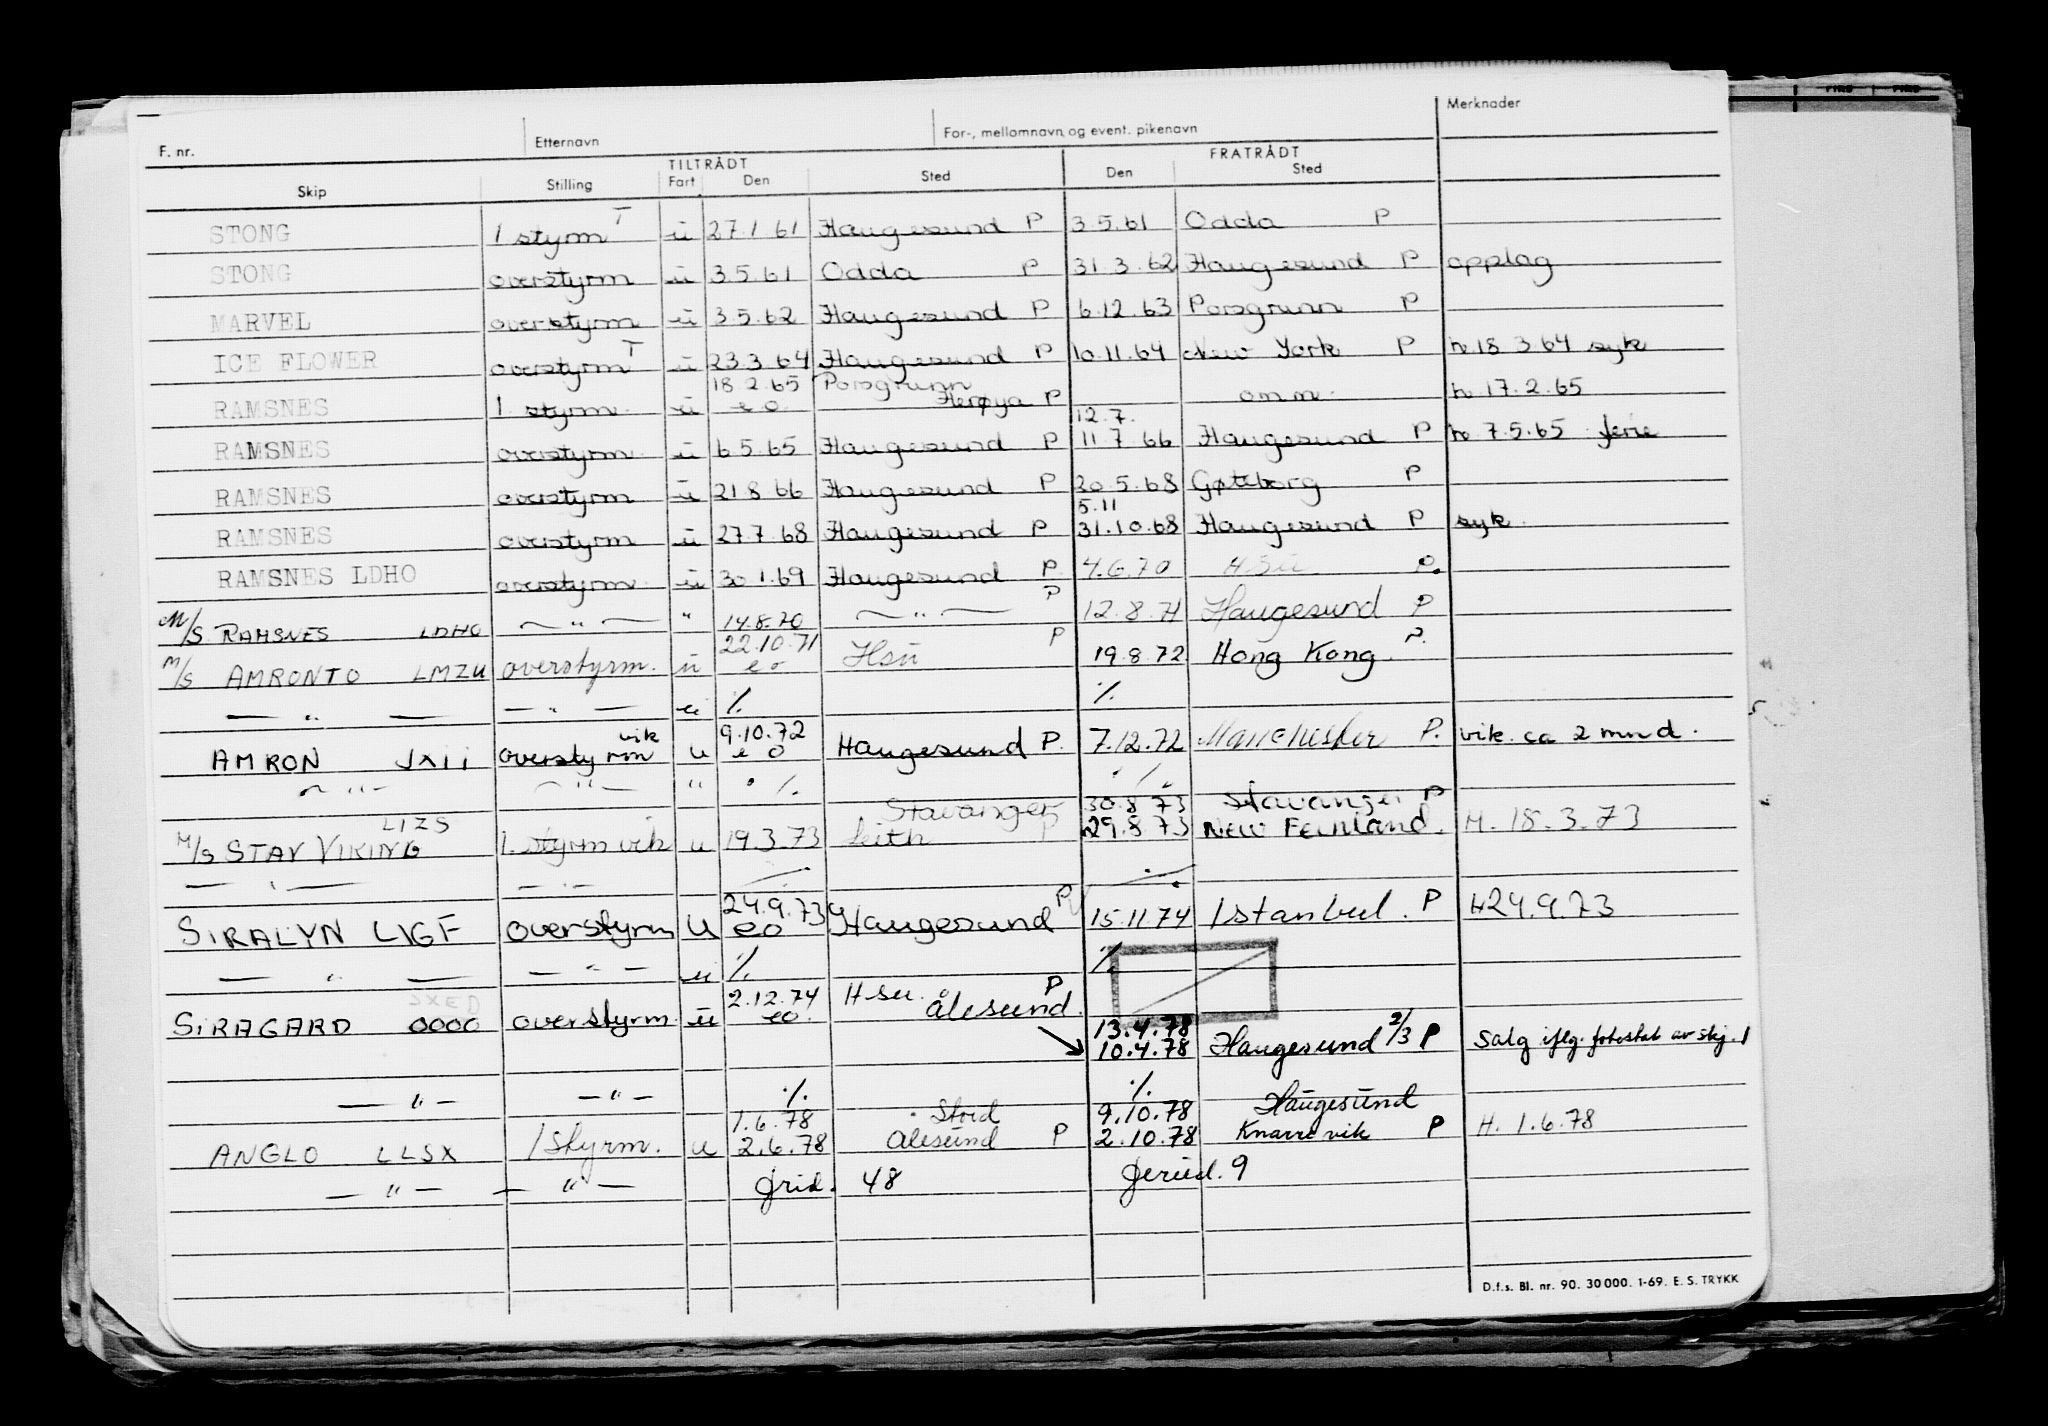 F. nr. Etternavn For-, mellomnavn og event. pikenavn Merknader
TILTRÅDT FRATRÅDT
Skip Stilling Fart Den Sted Den Sted
STONG 1 styrm T u 27.1 61 Haugesund P 3.5.61 Odda P
STONG overstyrm u 3.5.61 Odda P 31 3.62 Haugesund P opplag
MARVEL overstyrm u 3.5.62 Haugesund P 6.12.63 Porsgrunn P
ICE FLOWER overstyrm T u 23.3 64 Haugesund P 10.11.64 New York P h.18 3.64 syk
18 2.65 Porsgrunn
RAMSNES 1 styrm. u e o Herøya P omm. h 17.2.65
12.7.
RAMSNES overstyrm. u 6 5.65 Haugesund P 11 7 66 Haugesund P h. 7.5.65 ferie
RAMSNES overstyrm u 21 8 66 Haugesund P 20.5.68 Gøteborg P
5.11
RAMSNES overstyrm u 27.7.68 Haugesund P 31.10.68 Haugesund P syk.
RAMSNES LDHO overstyrm. u 30.1.69 Haugesund P 4.6.70 Hsu P.
M/S RAMSNES LDHO — " — " 14.8.70 — " — P 12.8.71 Haugesund P
22.10.71
M/S AMRONTO LMZU overstyrm. u e o Hsu P 19.8.72 Hong Kong P.
— " — — " — u ./. ./.
vik 9.10.72
AMRON JXII overstyrm u e o Haugesund P. 7.12.72 Manchester P. vik. ca 2 mnd.
— " — — " — " ./. ./.
LIZS Stavanger 30.8 73 Stavanger P
M/S STAV VIKING 1. styrm vik u 19.3.73 Leith P 29.8 73 New H. 18.3.73
— " — — " — ./. ./.
24.9.73
SIRALYN LIGF overstyrm u eo Haugesund P 15.11.74 Istanbul. P H24.9.73
— " — — " — u ./. ./.
JXED 2.12.74 Hsu. P
SIRAGARD 0000 overstyrm. u eo. Ålesund. 13.4.78
10.4.78 Haugesund 2/3 P Salg iflg. fotostat av skj. 1
— " — — " — ./. ./.
1.6.78 Stord 9.10.78 Haugesund
ANGLO LLSX 1 styrm. u 2.6.78 Ålesund P 2.10.78 Knarrevik P H. 1.6.78
— " — — " — frid. 48 feried. 9
D.f.s. Bl. nr. 90. 30 000. 1-69. E. S. TRYKK